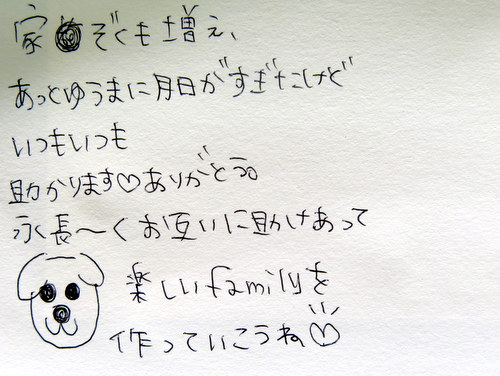 家ぞくも増え、
あっとゆうまに月日がすぎたけど
いつもいつも
助かります♡ありがとう。
永く長〜くお互いに助けあって
楽しいfamilyを
作っていこうね♡